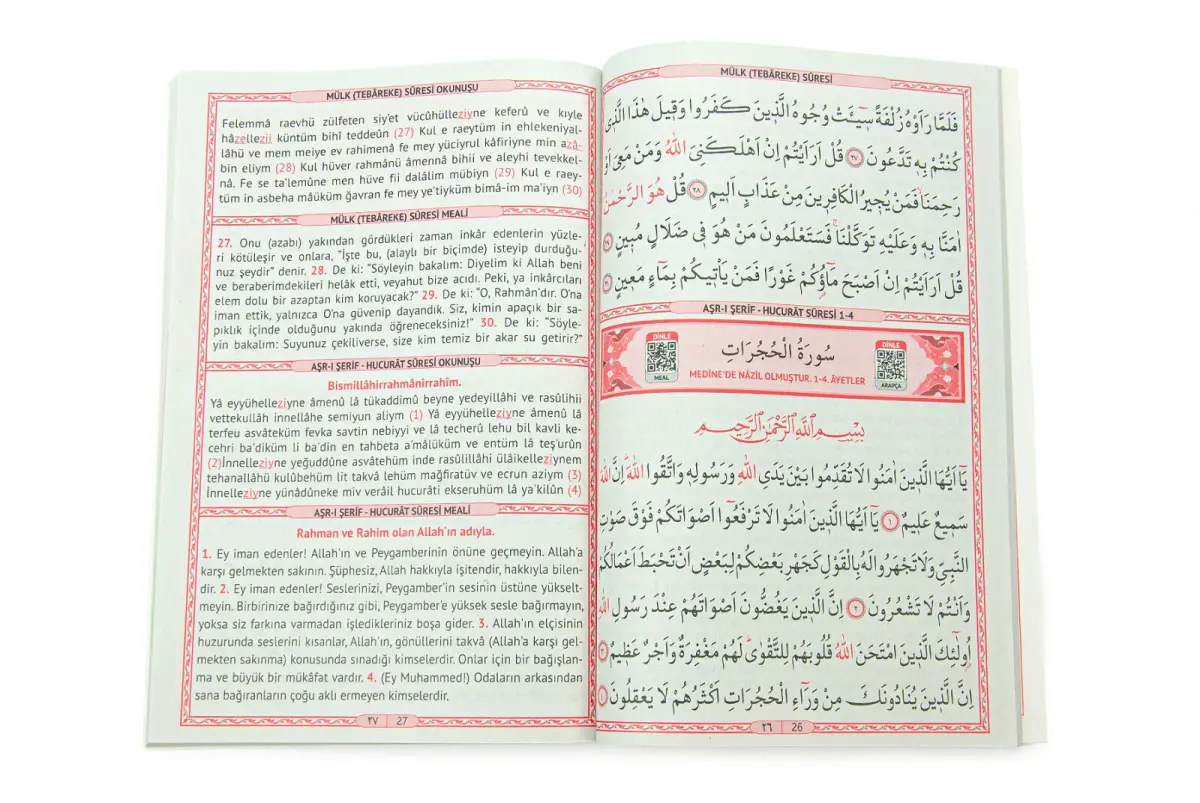 MÜLK (TEBÂREKE) SÛRESİ
فَلَمَّا رَاَوْهُ زُلْفَةً سٓيـَٔتْ وُجُوهُ الَّذ۪ينَ كَفَرُوا وَق۪يلَ هٰذَا الَّذ۪ي
كُنْتُمْ بِه۪ تَدَّعُونَ ٢٧ قُلْ اَرَاَيْتُمْ اِنْ اَهْلَكَنِيَ اللّٰهُ وَمَنْ مَعِيَ اَوْ
رَحِمَنَا فَمَنْ يُج۪يرُ الْكَافِر۪ينَ مِنْ عَذَابٍ اَل۪يمٍ ٢٨ قُلْ هُوَ الرَّحْمٰنُ
اٰمَنَّا بِه۪ وَعَلَيْهِ تَوَكَّلْنَا فَسَتَعْلَمُونَ مَنْ هُوَ ف۪ي ضَلَالٍ مُب۪ينٍ
قُلْ اَرَاَيْتُمْ اِنْ اَصْبَحَ مَٓاؤُ۬كُمْ غَوْرًا فَمَنْ يَأْت۪يكُمْ بِمَٓاءٍ مَع۪ينٍ
AŞR-I ŞERİF - HUCURÂT SÛRESİ 1-4
DİNLE
MEAL
سُورَةُ الْحُجُرَاتِ
MEDİNE'DE NÂZİL OLMUŞTUR. 1-4. ÂYETLER
DİNLE
ARAPÇA
بِسْمِ اللّٰهِ الرَّحْمٰنِ الرَّح۪يمِ
يَٓا اَيُّهَا الَّذ۪ينَ اٰمَنُوا لَا تُقَدِّمُوا بَيْنَ يَدَيِ اللّٰهِ وَرَسُولِه۪ وَاتَّقُوا اللّٰهَ اِنَّ اللّٰهَ
سَم۪يعٌ عَل۪يمٌ ١ يَٓا اَيُّهَا الَّذ۪ينَ اٰمَنُوا لَا تَرْفَعُٓوا اَصْوَاتَكُمْ فَوْقَ صَوْتِ
النَّبِيِّ وَلَا تَجْهَرُوا لَهُ بِالْقَوْلِ كَجَهْرِ بَعْضِكُمْ لِبَعْضٍ اَنْ تَحْبَطَ اَعْمَالُكُمْ
وَاَنْتُمْ لَا تَشْعُرُونَ ٢ اِنَّ الَّذ۪ينَ يَغُضُّونَ اَصْوَاتَهُمْ عِنْدَ رَسُولِ اللّٰهِ
اُو۬لٰٓئِكَ الَّذ۪ينَ امْتَحَنَ اللّٰهُ قُلُوبَهُمْ لِلتَّقْوٰى لَهُمْ مَغْفِرَةٌ وَاَجْرٌ عَظ۪يمٌ ٣
اِنَّ الَّذ۪ينَ يُنَادُونَكَ مِنْ وَرَٓاءِ الْحُجُرَاتِ اَكْثَرُهُمْ لَا يَعْقِلُونَ
٢٦ 26
MÜLK (TEBÂREKE) SÛRESİ OKUNUŞU
Felemmâ raevhü zülfeten siy'et vücûhülleziyne keferû ve kıyle
hâzellezii küntüm bihî teddeûn (27) Kul e raeytüm in ehlekeniyal-
lâhü ve mem meiye ev rahimenâ fe mey yüciyrul kâfiriyne min azâ-
bin eliym (28) Kul hüver rahmânü âmennâ bihii ve aleyhi tevekkel-
nâ. Fe se ta'lemûne men hüve fii dalâlim mübiyn (29) Kul e raey-
tüm in asbeha mâüküm ğavran fe mey ye'tiyküm bimâ-im ma'iyn (30)
MÜLK (TEBÂREKE) SÛRESİ MEALİ
27. Onu (azabı) yakından gördükleri zaman inkâr edenlerin yüzle-
ri kötüleşir ve onlara, "İşte bu, (alaylı bir biçimde) isteyip durduğu-
nuz şeydir" denir. 28. De ki: "Söyleyin bakalım: Diyelim ki Allah beni
ve beraberimdekileri helâk etti, veyahut bize acıdı. Peki, ya inkârcıları
elem dolu bir azaptan kim koruyacak?" 29. De ki: "O, Rahmân'dır. O'na
iman ettik, yalnızca O'na güvenip dayandık. Siz, kimin apaçık bir sa-
pıklık içinde olduğunu yakında öğreneceksiniz!" 30. De ki: "Söyle-
yin bakalım: Suyunuz çekiliverse, size kim temiz bir akar su getirir?"
AŞR-I ŞERİF - HUCURÂT SÛRESİ OKUNUŞU
Bismillâhirrahmânirrahîm.
Yâ eyyühelleziyne âmenû lâ tükaddimû beyne yedeyillâhi ve rasûlihii
vettekullâh innellâhe semiyun aliym (1) Yâ eyyühelleziyne âmenû lâ
terfeu asvâteküm fevka savtin nebiyyi ve lâ techerû lehu bil kavli ke-
cehri ba'diküm li ba'din en tahbeta a'mâlüküm ve entüm lâ teş'urûn
(2)İnnelleziyne yeğuddûne asvâtehüm inde rasûlillâhi ülâikelleziynem
tehanallâhu kulûbehüm lit takvâ lehüm mağfiratüv ve ecrun aziym (3)
İnnelleziyne yünâdûneke miv verâil hucurâti ekseruhüm lâ ya'kilûn (4)
AŞR-I ŞERİF - HUCURÂT SÛRESİ MEALİ
Rahman ve Rahim olan Allah'ın adıyla.
1. Ey iman edenler! Allah'ın ve Peygamberinin önüne geçmeyin. Allah'a
karşı gelmekten sakının. Şüphesiz, Allah hakkıyla işitendir, hakkıyla bilen-
dir. 2. Ey iman edenler! Seslerinizi, Peygamber'in sesinin üstüne yükselt-
meyin. Birbirinize bağırdığınız gibi, Peygamber'e yüksek sesle bağırmayın,
yoksa siz farkına varmadan işledikleriniz boşa gider. 3. Allah'ın elçisinin
huzurunda seslerini kısanlar, Allah'ın, gönüllerini takvâ (Allah'a karşı gel-
mekten sakınma) konusunda sınadığı kimselerdir. Onlar için bir bağışlan-
ma ve büyük bir mükâfat vardır. 4. (Ey Muhammed!) Odaların arkasından
sana bağıranların çoğu aklı ermeyen kimselerdir.
٢٧ 27